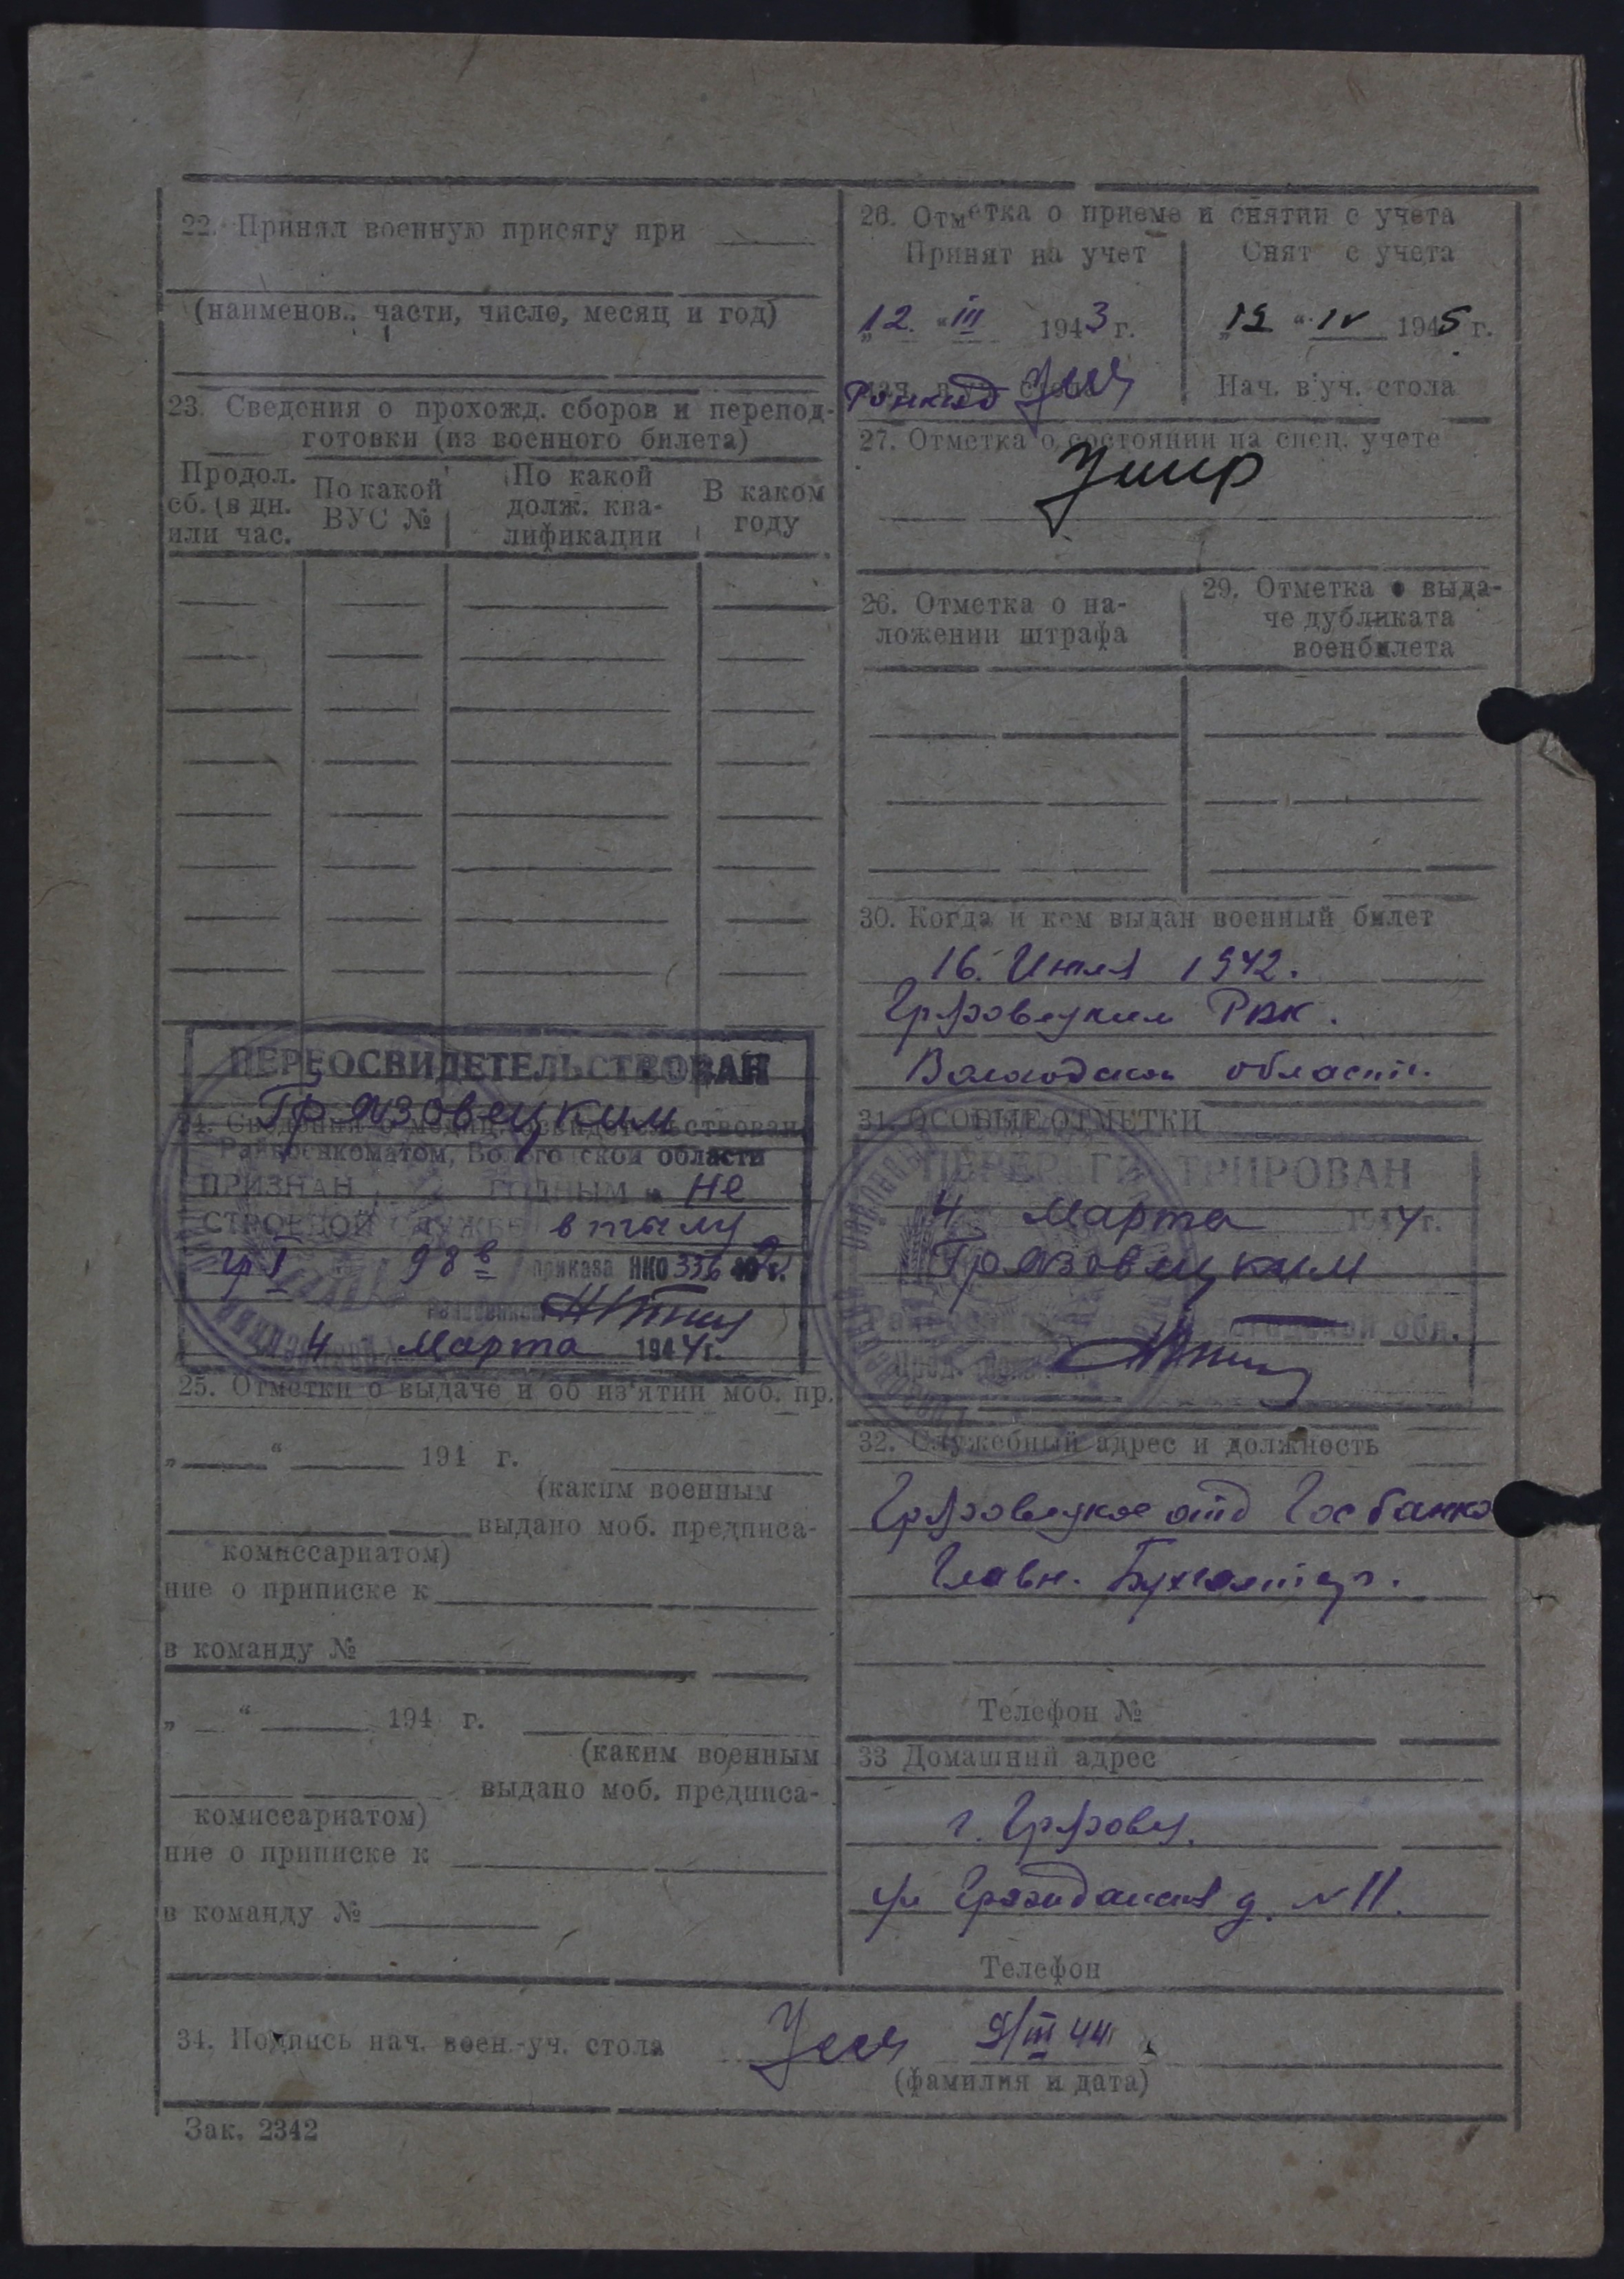 22. Принял военную присягу при
(наименов.. части, число, месяц и год)
23. Сведения о прохожд. сборов и перепод-
готовки (из военного билета)
Продол.
сб. (в дн.
или час.
По какой
ВУС №
По какой
долж. ква-
лификации
В каком
году
ПЕРЕОСВИДЕТЕЛЬСТВОВАН
Грязовецким
Райвоенкоматом, Вологодской области
ПРИЗНАН ГОДНЫМ к не
СТРОЕВОЙ СЛУЖБЕ в тылу
гр I 98 в приказа НКО 336 42 г.
4 марта 1944 г.
25. Отметки о выдаче и об из'ятии моб. пр.
„ “ 194 г.
(каким военным
выдано моб. предписа-
комиссариатом)
ние о приписке к
в команду №
„ “ 194 г.
(каким военным
выдано моб. предписа-
комиссариатом)
ние о приписке к
в команду №
26. Отметка о приеме и снятии с учета
Принят на учет
„12 “ III 1943 г.
Снят с учета
„12 “ IV 1945 г.
Нач. в'уч. стола
27. Отметка о состоянии на спец. учете
Умир
26. Отметка о на-
ложении штрафа
29. Отметка о выда-
че дубликата
военбилета
30. Когда и кем выдан военный билет
16. Июля 1942.
Грязовецким РВК.
Вологодской области.
31. ОСОБЫЕ ОТМЕТКИ
ПЕРЕРЕГИСТРИРОВАН
4 Марта 1944 г.
Грязовецким
обл.
32. Служебный адрес и должность
Грязовецкое отд Госбанка
Главн. Бухгалтер.
Телефон №
33 Домашний адрес
г. Грязовец.
ул Гражданская д. №11.
Телефон
34. Подпись нач. воен.-уч. стола 9/III 44
(фамилия и дата)
Зак. 2342